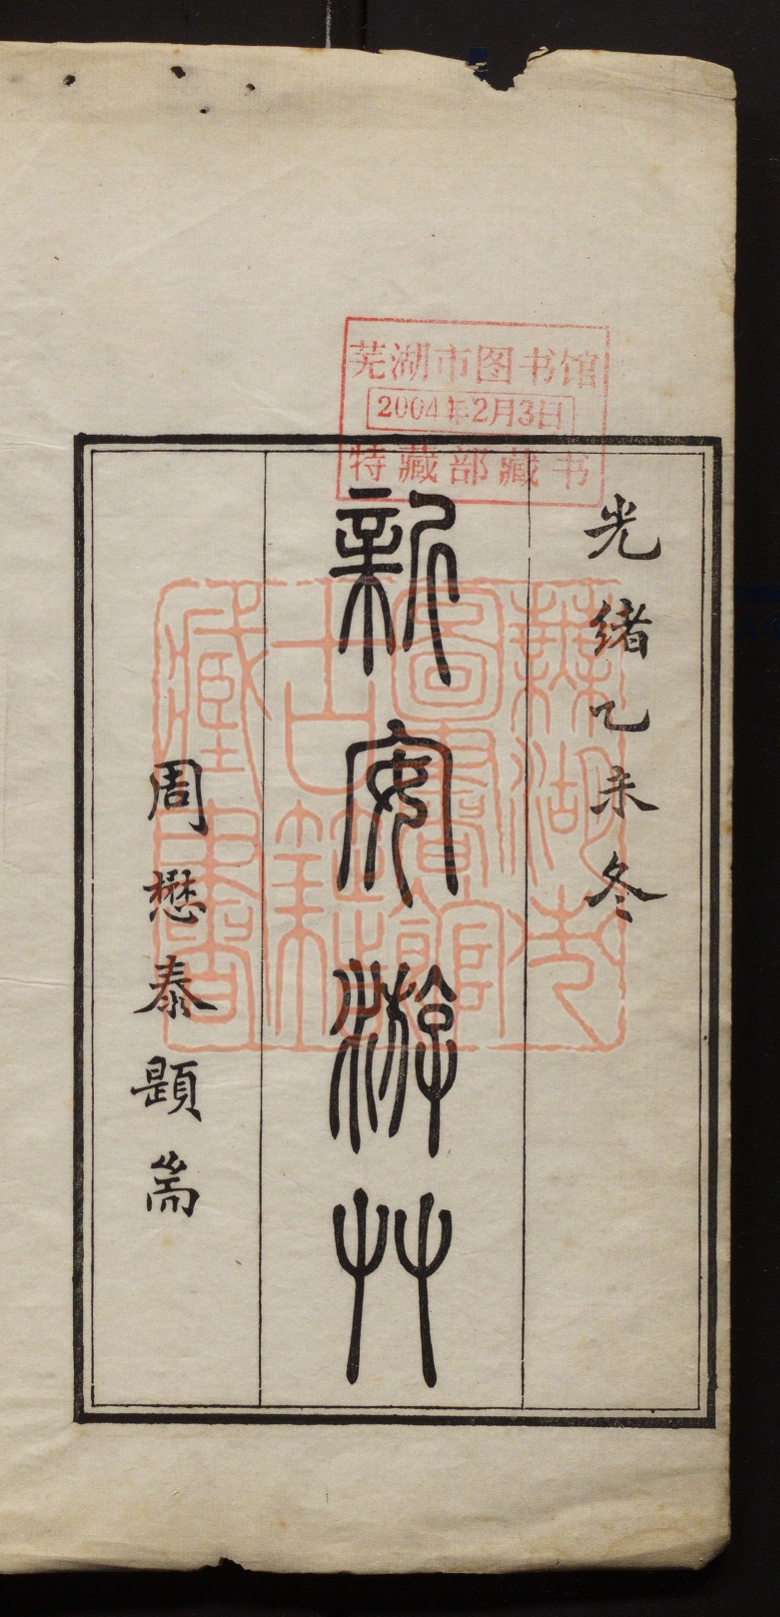 芜湖市图书馆
2004年2月3日
特藏部藏书
光緒乙未冬
新安游艸
周懋泰題耑
蕪湖市
圖書館
古籍
藏書